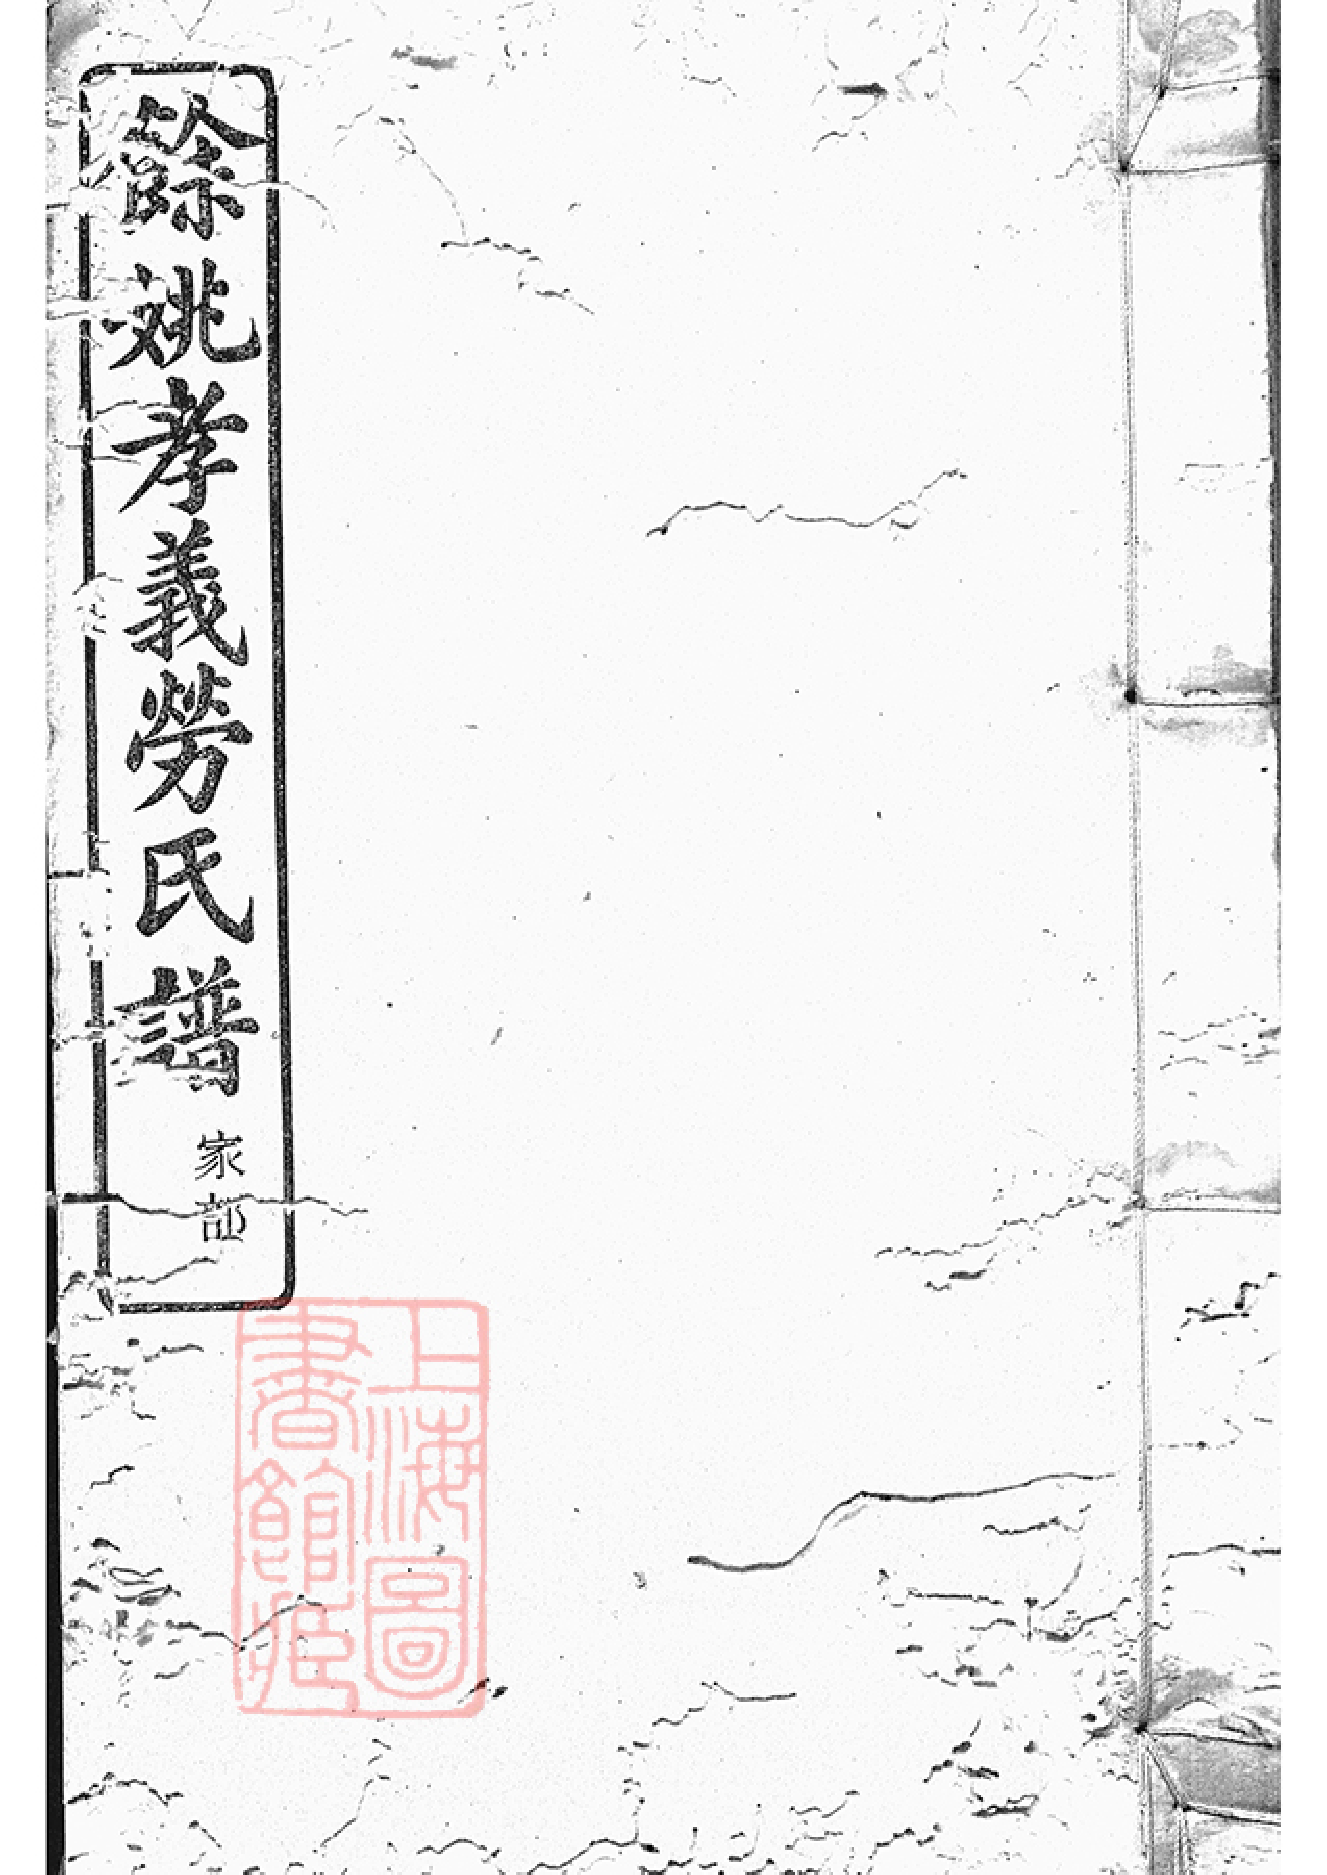 餘姚孝義勞氏譜
家部
上海圖
書館藏